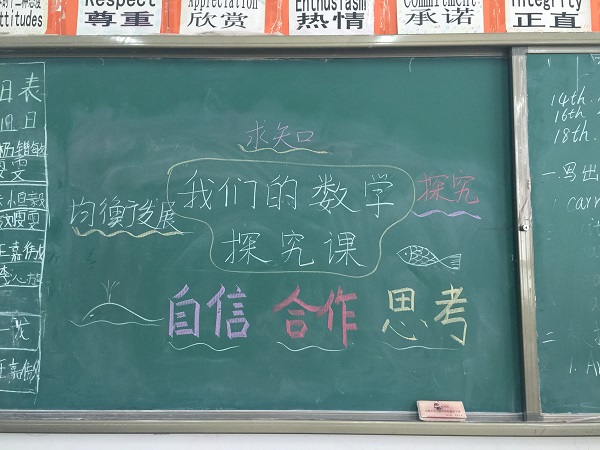 Respect
尊重
Appreciation
欣赏
Enthusiasm
热情
Commitment
承诺
Integrity
正直
ttitudes
求知口
我们的数学
探究课
均衡发展
探究
自信 合作 思考
表
日
14th.
16th
18th.
一.写出
1. carr
二
1. A